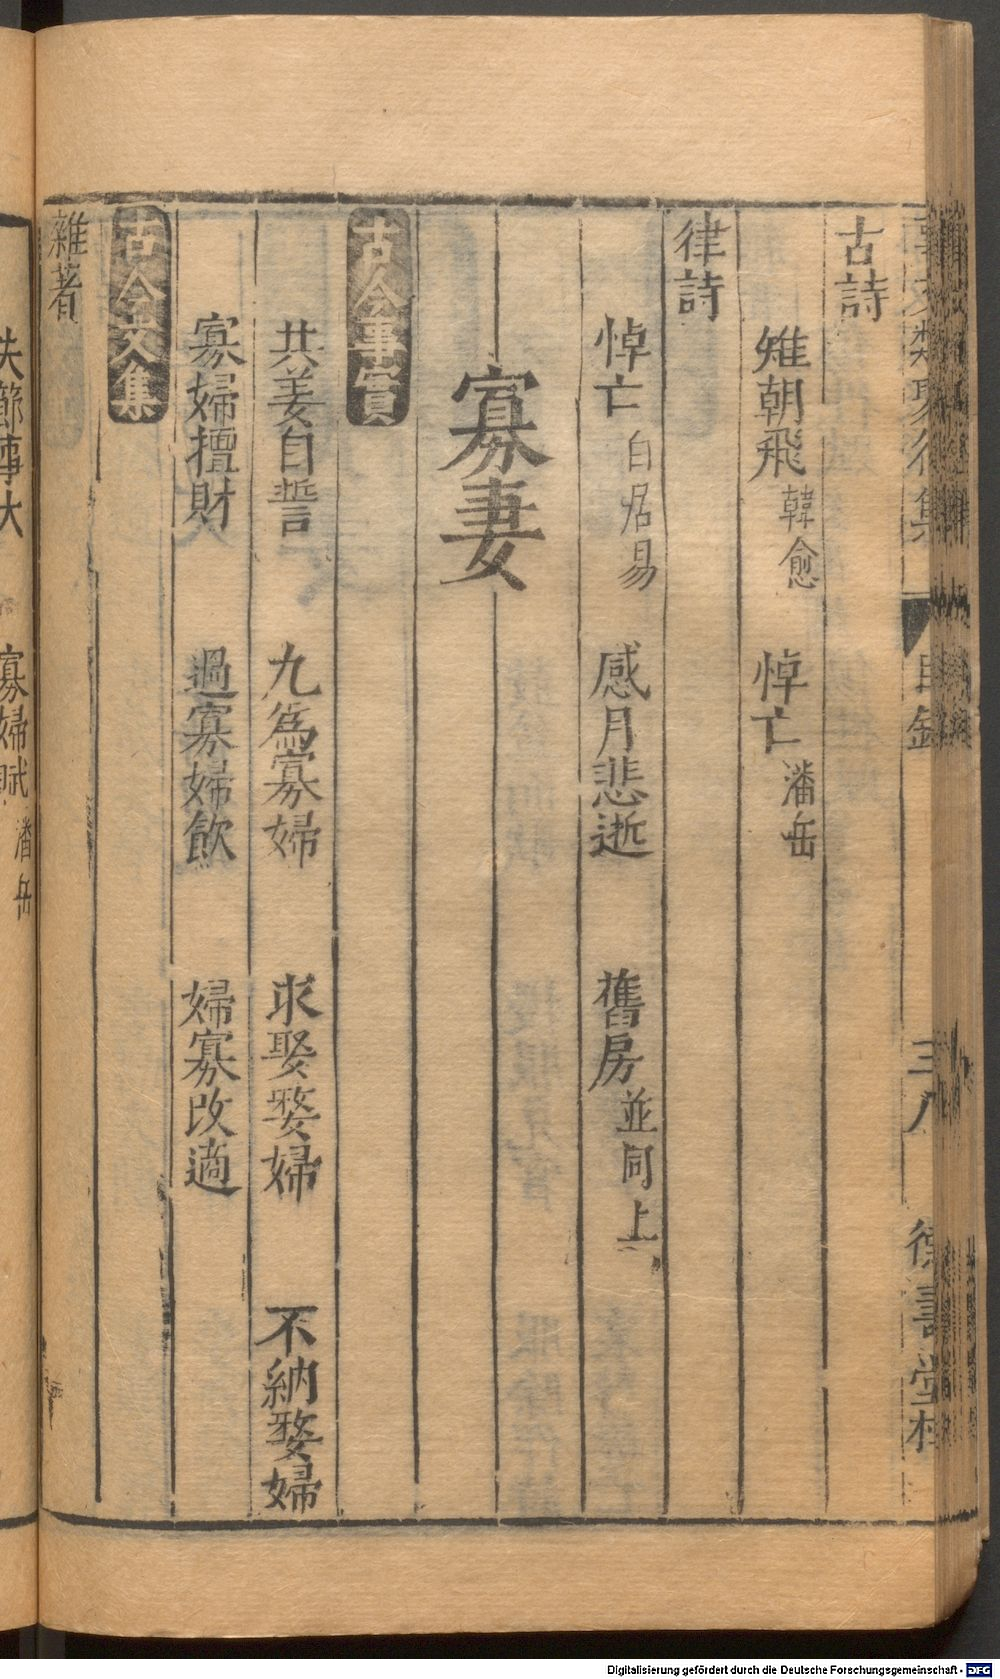 古詩
雉朝飛 韓愈 悼亡 潘岳
律詩
悼亡 白居易 感月悲逝 舊房 並同上
寡妻
古今事實
共姜自誓 九爲寡婦 求娶嫠婦 不納嫠婦
寡婦擅財 過寡婦飲 婦寡改適
古今文集
雜著
失節事大 寡婦賦 潘岳
Digitalisierung gefördert durch die Deutsche Forschungsgemeinschaft - DFG